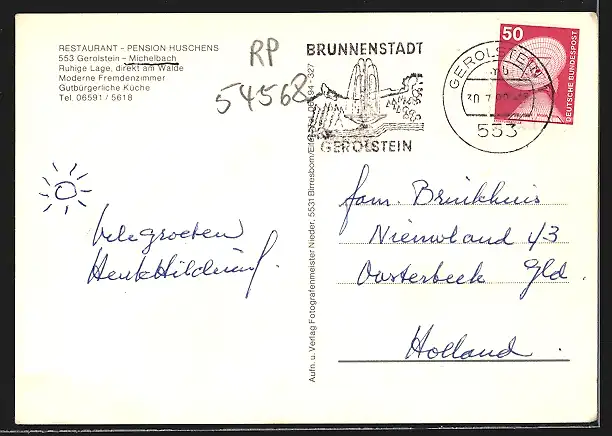 RESTAURANT - PENSION HUSCHENS
553 Gerolstein - Michelbach
Ruhige Lage, direkt am Walde
Moderne Fremdenzimmer
Gutbürgerliche Küche
Tel. 06591 / 5618
RP
54568
BRUNNENSTADT
GEROLSTEIN
GEROLSTEIN
553
50
DEUTSCHE BUNDESPOST
Aufn. u. Verlag Fotografenmeister Nieder, 5531 Birresborn/Eifel
327
Vele groeten
Henk Hildring
fam. Brinkhuis
Nieuwland 43
Oosterbeek Gld.
Holland.